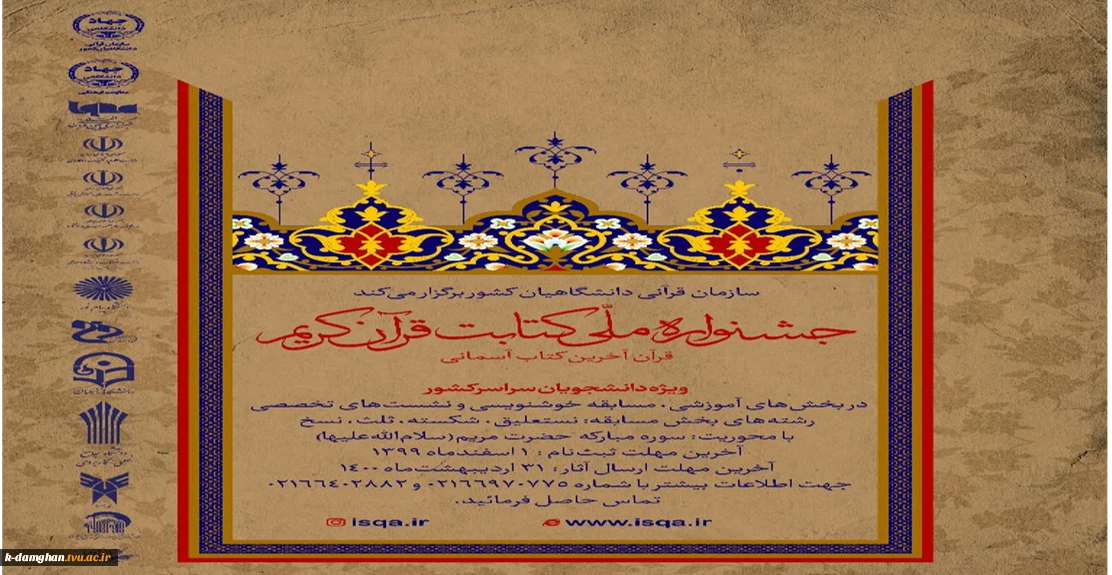 سازمان قرآنی دانشگاهیان کشور برگزار می‌کند
جشنواره ملّی کتابت قرآن کریم
قرآن آخرین کتاب آسمانی
ویژه دانشجویان سراسر کشور
در بخش‌های آموزشی، مسابقه خوشنویسی و نشست‌های تخصصی
رشته‌های بخش مسابقه: نستعلیق، شکسته، ثلث، نسخ
با محوریت: سوره مبارکه حضرت مریم (سلام‌الله‌علیها)
آخرین مهلت ثبت‌نام: ۱ اسفندماه ۱۳۹۹
آخرین مهلت ارسال آثار: ۳۱ اردیبهشت‌ماه ۱۴۰۰
جهت اطلاعات بیشتر با شماره ۰۲۱۶۶۹۷۰۷۷۵ و ۰۲۱۶۶۴۰۲۸۸۲
تماس حاصل فرمائید.
isqa.ir www.isqa.ir
جهاد
دانشگاهی
سازمان قرآنی
دانشگاهیان کشور
جهاد
دانشگاهی
معاونت فرهنگی
k-damghan.tvu.ac.ir